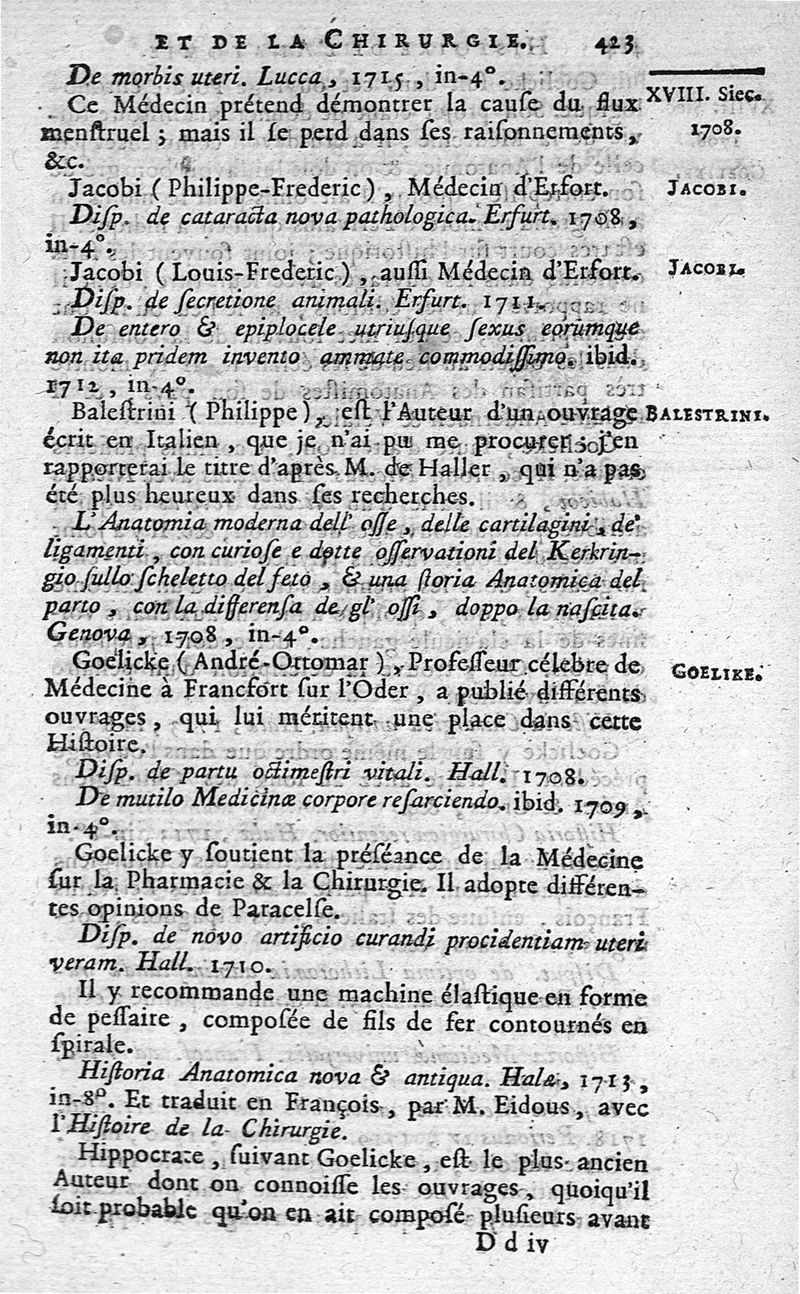 ET DE LA CHIRURGIE. 423
De morbis uteri. Lucca, 1715, in-4°.
XVIII. Siec.
1708.
Ce Médecin prétend démontrer la cauſe du flux
menſtruel; mais il ſe perd dans ſes raiſonnements,
&c.
Jacobi (Philippe-Frederic), Médecin d'Erfort.
JACOBI.
Diſp. de cataracta nova pathologica. Erfurt. 1708,
in-4°.
Jacobi (Louis-Frederic), auſſi Médecin d'Erfort.
JACOBI.
Diſp. de ſecretione animali. Erfurt. 1711.
De entero & epiplocele utriuſque ſexus eorumque
non ita pridem invento ammate commodiſſimo. ibid.
1712, in-4°.
Baleſtrini (Philippe), eſt l'Auteur d'un ouvrage
BALESTRINI.
écrit en Italien, que je n'ai pu me procurer: j'en
rapporterai le titre d'après M. de Haller, qui n'a pas
été plus heureux dans ſes recherches.
L'Anatomia moderna dell' oſſe, delle cartilagini, de'
ligamenti, con curioſe e dotte oſſervationi del Kerkrin-
gio ſullo ſcheletto del feto, & una ſtoria Anatomica del
parto, con la differenſa de gl' oſſi, doppo la naſcita.
Genova, 1708, in-4°.
Goelicke (André-Ottomar), Profeſſeur célebre de
GOELIKE.
Médecine à Francfort ſur l'Oder, a publié différents
ouvrages, qui lui méritent une place dans cette
Hiſtoire.
Diſp. de partu octimeſtri vitali. Hall. 1708.
De mutilo Medicinæ corpore reſarciendo. ibid. 1709,
in-4°.
Goelicke y ſoutient la préſéance de la Médecine
ſur la Pharmacie & la Chirurgie. Il adopte différen-
tes opinions de Paracelſe.
Diſp. de novo artificio curandi procidentiam uteri
veram. Hall. 1710.
Il y recommande une machine élaſtique en forme
de peſſaire, compoſée de fils de fer contournés en
ſpirale.
Hiſtoria Anatomica nova & antiqua. Halæ, 1713,
in-8°. Et traduit en François, par M. Eidous, avec
l'Hiſtoire de la Chirurgie.
Hippocrate, ſuivant Goelicke, eſt le plus ancien
Auteur dont on connoiſſe les ouvrages, quoiqu'il
ſoit probable qu'on en ait compoſé pluſieurs avant
D d iv